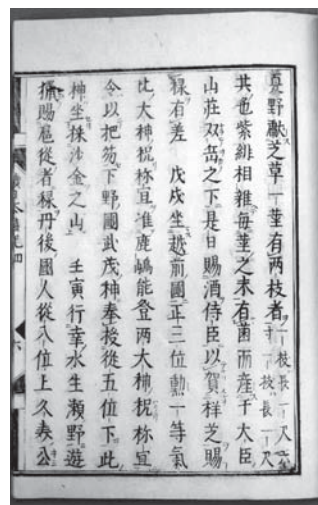 夏野獻芝草一莖有兩枝者一枝長一尺
寸一枝長一尺
其色紫緋相雜每莖之末有菌而產于大臣
山莊双岳之下是日賜酒侍臣以賀祥芝賜
祿有差　戊戌坐越前國正三位勳一等氣
比大神祝祢宜准鹿嶋能登兩大神祝祢宜
令以把笏下野國武茂神奉授從五位下此
神坐採沙金之山　壬寅行幸水生瀨野遊
獵賜扈從者祿丹後國人從八位上久美公
六